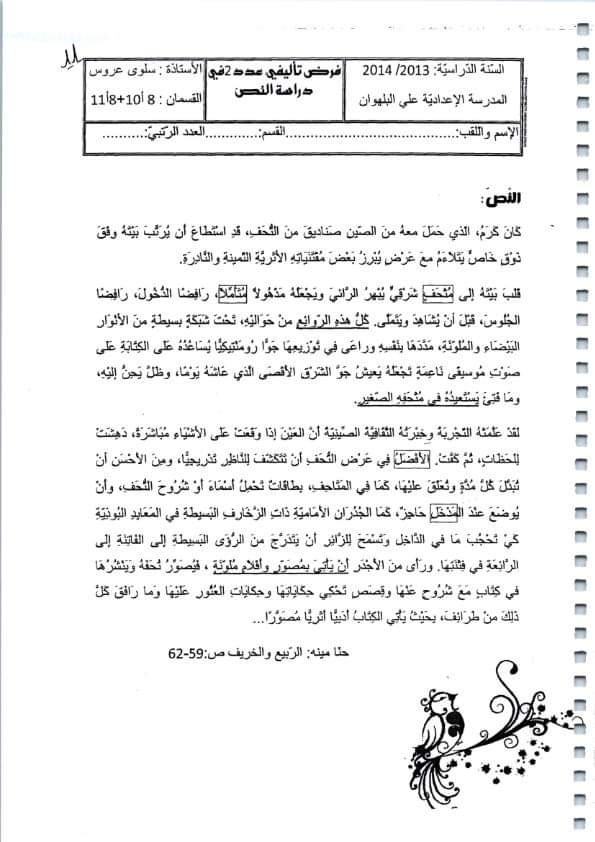 السّنة الدّراسيّة: 2013/ 2014
المدرسة الإعداديّة علي البلهوان
فرض تأليفي عدد2في
دراسة النّص
الأستاذة : سلوى عروس
القسمان : 8 أ10+8أ11
الإسم واللقب:..........................................القسم:............العدد الرّتبيّ:..........
النّصّ:
كَانَ كَرَمُ، الذي حَمَلَ معهُ منَ الصّين صَناديقَ منَ التُّحَفِ، قَدِ استَطَاعَ أن يُرَتِّبَ بَيْتَهُ وفْقَ
ذَوْقٍ خَاصٍّ يَتَلَاءَمُ معَ عَرْضٍ يُبْرِزُ بَعْضَ مقْتَنَيَاتِهِ الأثريَّةِ الثّمينةِ والنَّادِرَةِ.
قلبَ بَيْتَهُ إلى مُتْحَفٍ شَرْقِيٍّ يُبْهِرُ الرَّائيَ ويَجْعَلُهُ مَذْهُولاً مُتَأَمِّلاً، رَافِضًا الدُّخُولَ، رَافِضًا
الجُلُوسَ، قَبْلَ أنْ يُشَاهِدَ ويَتَمَلَّى. كُلُّ هذهِ الرَّوائِعِ منْ حَوَالَيْهِ، تَحْتَ شَبَكَةٍ بَسِيطَةٍ منَ الأنْوَارِ
البَيْضَاءِ والمُلَوّنَةِ، مَدَّدَهَا بنَفْسِهِ وراعَى في تَوْزِيعِهَا جَوًّا رُومَنْتِيكِيًّا يُسَاعِدُهُ عَلَى الكِتَابَةِ عَلَى
صَوْتِ مُوسيقَى نَاعِمَةٍ تَجْعَلُهُ يَعيشُ جَوَّ الشَّرْقِ الأقْصَى الّذي عَاشَهُ يَوْمًا، وظَلَّ يَحِنُّ إليْهِ،
ومَا فَتِئَ يَسْتَعِيدُهُ في مُتْحَفِهِ الصَّغيرِ.
لقَدْ عَلَّمَتْهُ التّجْرِبَةُ وخِبْرَتُهُ الثَّقافِيَّةُ الصِّينِيَّةُ أنَّ العَيْنَ إذَا وقَعَتْ عَلَى الأشْيَاءِ مُبَاشَرَةً، دَهِشَتْ
لِلَحَظَاتٍ، ثُمَّ كَفَّتْ. الأفْضَلُ في عَرْضِ التُّحَفِ أنْ تَتَكَشَّفَ لِلنَّاظِرِ تَدْرِيجِيًّا، ومِنَ الأحْسَنِ أنْ
تُبَدَّلَ كُلَّ مُدَّةٍ وتُعَلَّقَ عليْهَا، كَمَا في المَتَاحِفِ، بطَاقَاتٌ تَحْمِلُ أسْمَاءَ أوْ شُرُوحَ التُّحَفِ، وأنْ
يُوضَعَ عنْدَ المَدْخَلِ حَاجِزٌ، كَمَا الجُدْرَانِ الأمَامِيَّةِ ذَاتِ الزَّخَارِفِ البَسيطَةِ في المَعَابِدِ البُوذِيَّةِ
كَيْ تَحْجُبَ مَا في الدَّاخِلِ وتَسْمَحَ لِلزَّائِرِ أنْ يَتَدَرَّجَ منَ الرُّؤَى البَسِيطَةِ إلى الفَاتِنَةِ إلى
الرَّائِعَةِ في فِتْنَتِهَا. ورأَى منَ الأجْدَرِ أنْ يَأْتِيَ بمُصَوّرٍ وأفْلامٍ مُلوّنَةٍ ، فَيُصَوِّرُ تُحَفَهُ ويَنْشُرُهَا
في كِتَابٍ مَعَ شُرُوحٍ عَنْهَا وقِصَصٍ تَحْكِي حِكَايَاتِهَا وحِكَايَاتِ العُثُورِ عَلَيْهَا وَما رَافَقَ كُلَّ
ذلِكَ منْ طَرَائِفَ، بحَيْثُ يَأْتِي الكِتَابُ أدَبِيًّا أثَرِيًّا مُصَوَّرًا...
حنّا مينه: الرّبيع والخريف ص:59-62